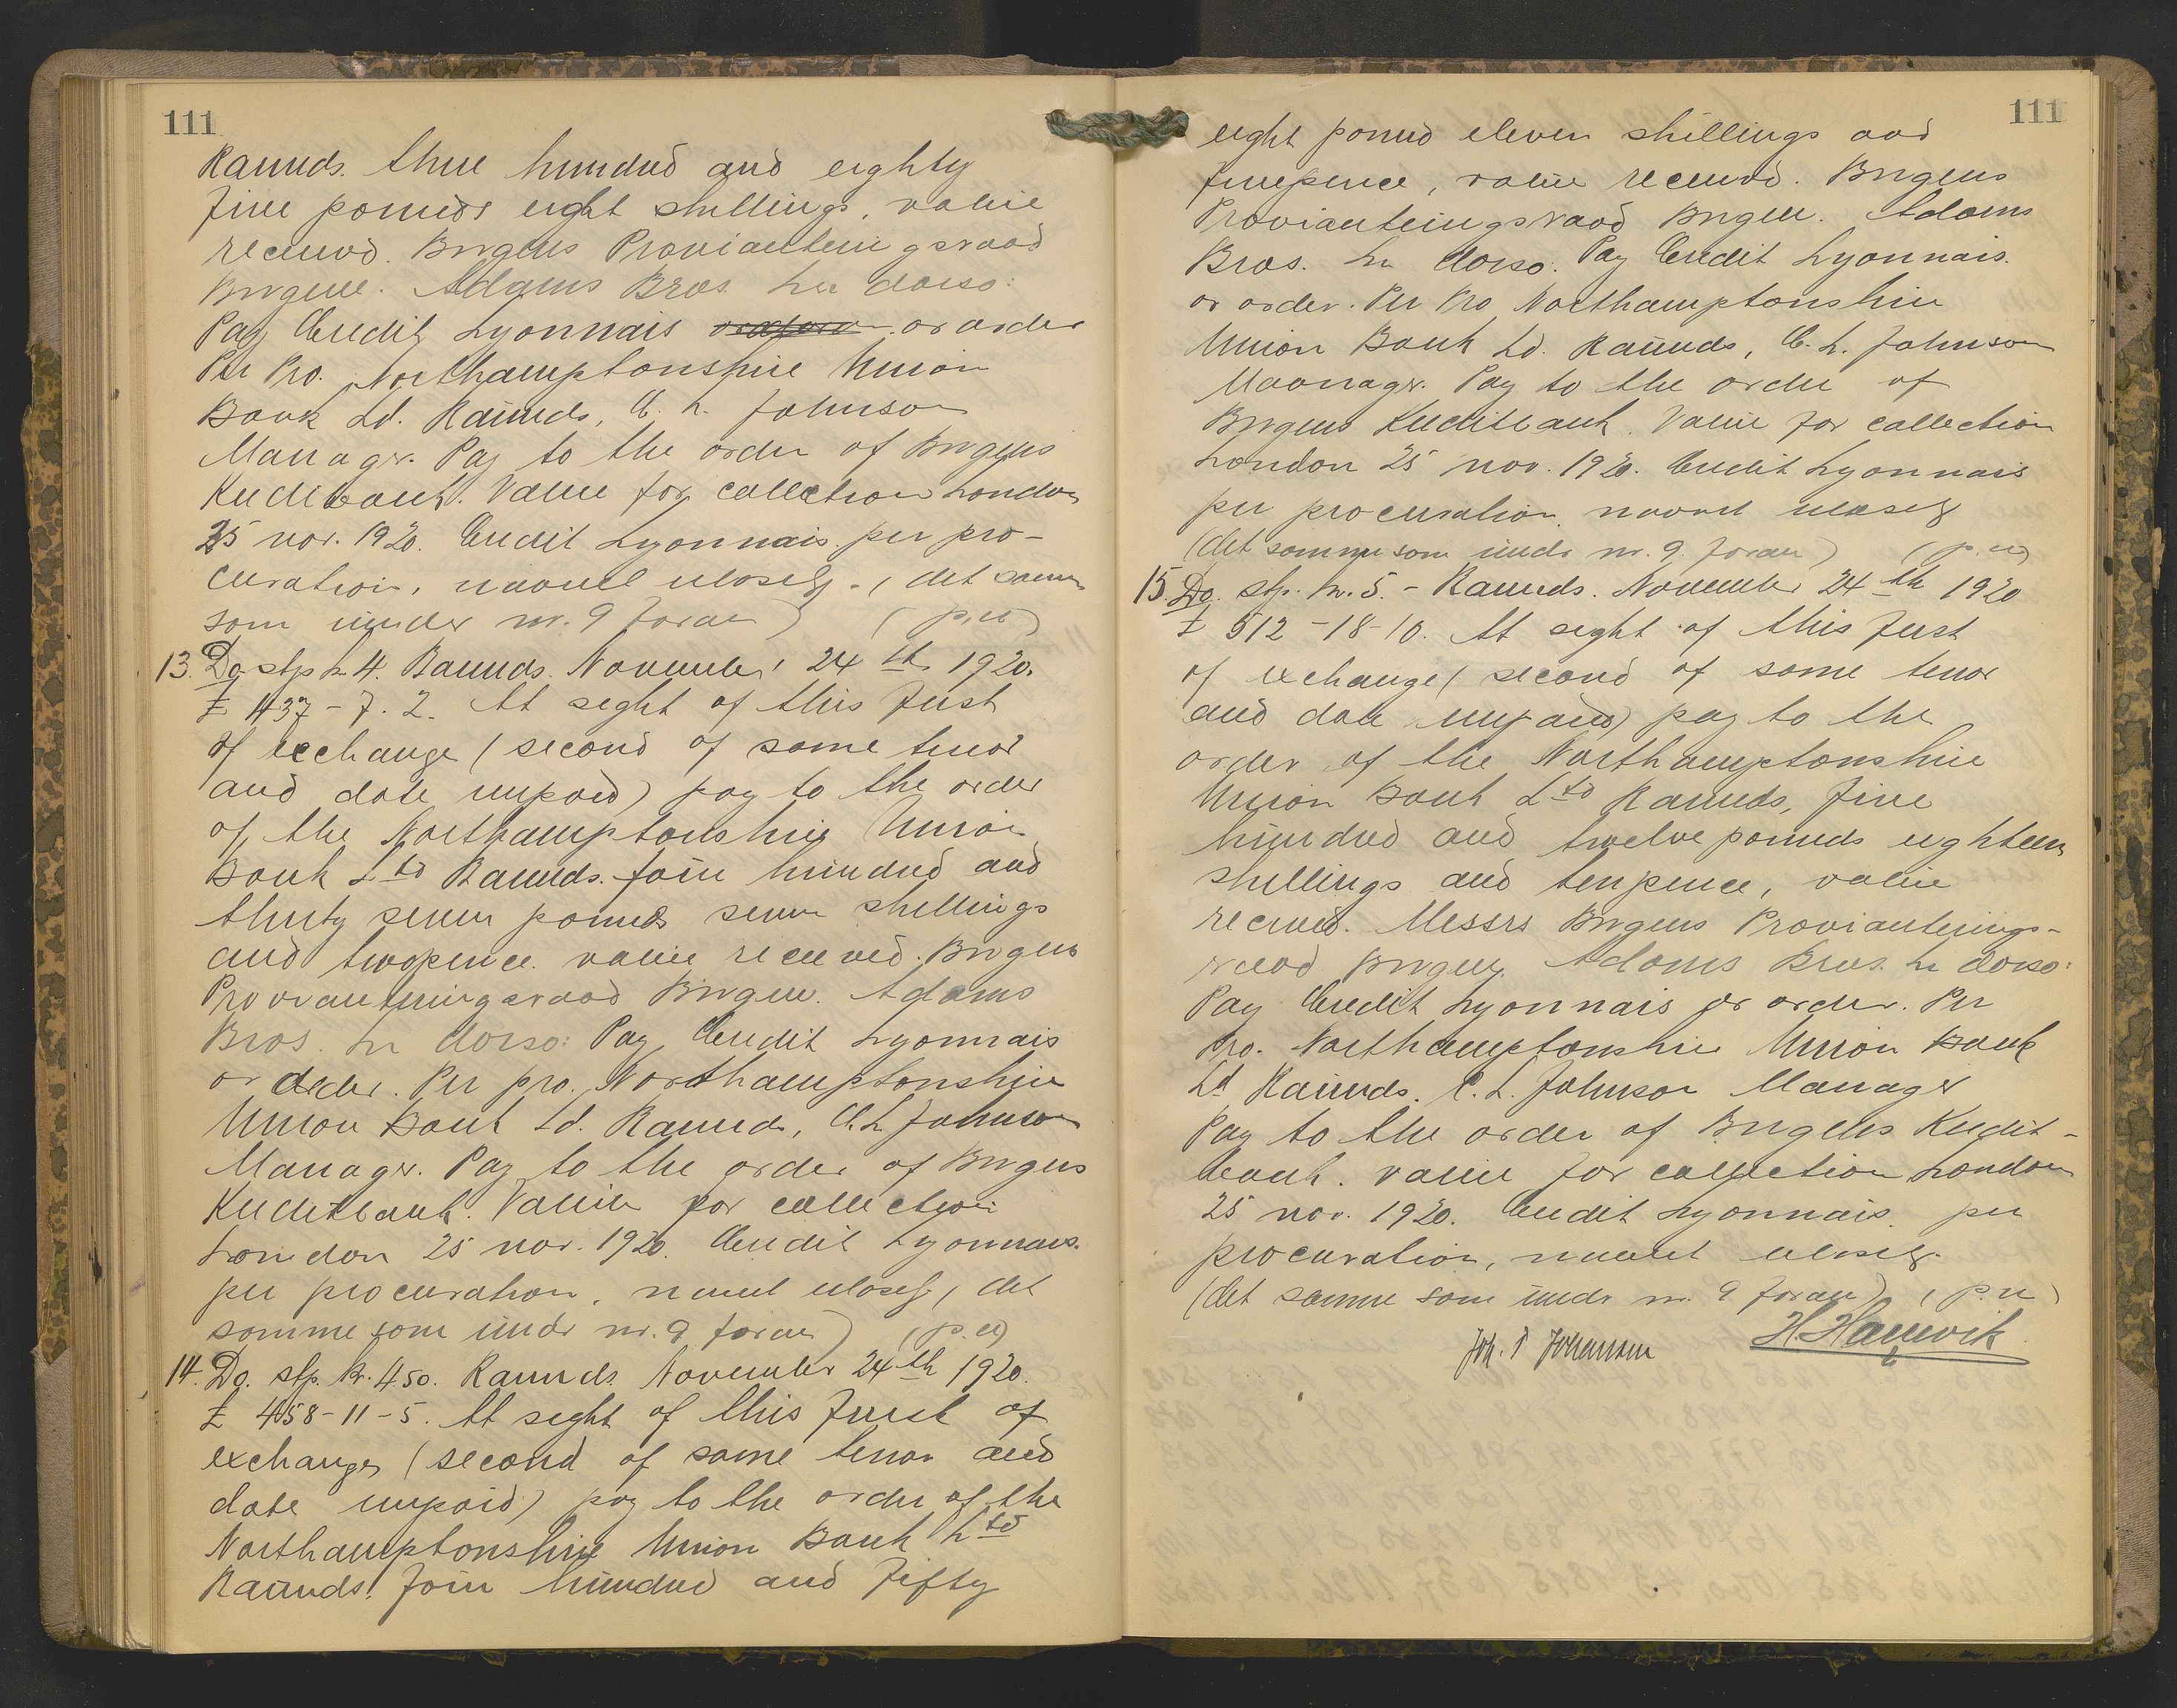 111
Raunds. three hundred and eighty
five pounds eight shillings, value
received. Bergens Provianteringsraad
Bergen. Adams Bros. In dorso:
Pay Credit Lyonnais or order
Per Pro. Northamptonshire Union
Bank Ld. Raunds, C. L. Johnson
Manager. Pay to the order of Bergens
Kreditbank. Value for collection London
25 nov. 1920. Credit Lyonnais per pro-
curation, navnet ulæselig. (det samme
som under nr. 9 foran) (p.u)
13. Do. stp. kr. 4. Raunds. November 24th 1920.
£ 437-7.2. At sight of this first
of exchange (second of same tenor
and date unpaid) pay to the order
of the Northamptonshire Union
Bank Ltd Raunds. four hundred and
thirty seven pounds seven shillings
and twopence. value received. Bergens
Provianteringsraad Bergen. Adams
Bros. In dorso: Pay Credit Lyonnais
or order. Per pro. Northamptonshire
Union Bank Ld. Raunds, C. L. Johnson
Manager. Pay to the order of Bergens
Kreditbank. Value for collection
London 25 nov. 1920. Credit Lyonnais.
per procuration, navnet ulæselig, (det
samme som under nr. 9 foran) (p.u)
14. Do. stp. kr. 4.50. Raunds November 24th 1920.
£ 458-11-5. At sight of this first of
exchange (second of same tenor and
date unpaid) pay to the order of the
Northamptonshire Union Bank Ltd
Raunds. Four hundred and fifty
111
eight pound eleven shillings and
fivepence, value received. Bergens
Provianteringsraad Bergen. Adams
Bros. In dorso: Pay Credit Lyonnais.
or order. Per Pro Northamptonshire
Union Bank Ld. Raunds, C. L. Johnson
Maanager. Pay to the order of
Bergens Kreditbank. Value for collection
London 25 nov. 1920. Credit Lyonnais
per procuration, navnet ulæselig
(det samme som under nr. 9 foran) (p.u)
15. Do. stp. kr. 5. - Raunds. November 24th 1920
£ 512-18-10. At sight of this first
of exchange (second of same tenor
and date unpaid) pay to the
order of the Northamptonshire
Union Bank Ltd Raunds, five
hundred and twelve pounds eighteen
shillings and tenpence, value
received. Messrs Bergens Provianterings-
raad Bergen. Adams Bros. In dorso:
Pay Credit Lyonnais or order. Per
Pro. Northamptonshire Union Bank
Ld Raunds. C. L. Johnson Manager
Pay to the order of Bergens Kredit-
bank. value for collection London
25 nov. 1920. Credit Lyonnais. per
procuration, navnet ulæselig.
(det samme som under nr. 9 foran) (p.u)
Joh. P Johannsen H. Haugvik